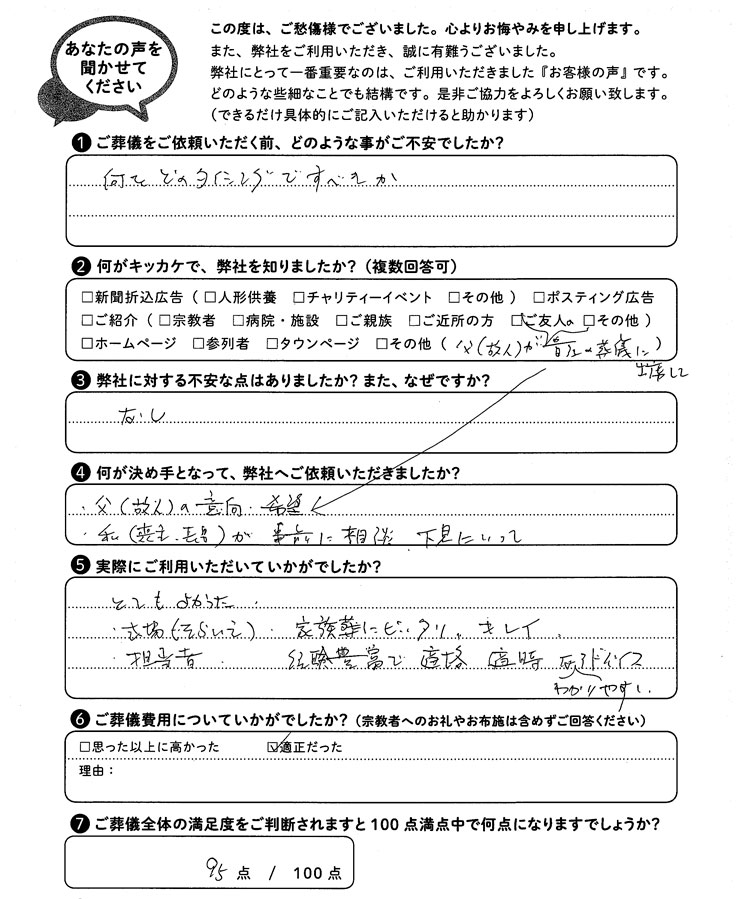 あなたの声を
聞かせて
ください
この度は、ご愁傷様でございました。心よりお悔やみを申し上げます。
また、弊社をご利用いただき、誠に有難うございました。
弊社にとって一番重要なのは、ご利用いただきました『お客様の声』です。
どのような些細なことでも結構です。是非ご協力をよろしくお願い致します。
（できるだけ具体的にご記入いただけると助かります）
❶ ご葬儀をご依頼いただく前、どのような事がご不安でしたか？
何をどのタイミングですべきか
❷ 何がキッカケで、弊社を知りましたか？（複数回答可）
□新聞折込広告（□人形供養 □チャリティーイベント □その他） □ポスティング広告
□ご紹介（□宗教者 □病院・施設 □ご親族 □ご近所の方 □ご友人 □その他）
□ホームページ □参列者 □タウンページ □その他（父（故人）が の葬儀に）
出席して
❸ 弊社に対する不安な点はありましたか？また、なぜですか？
なし
❹ 何が決め手となって、弊社へご依頼いただきましたか？
・父（故人）の意向・希望
・私（喪主・長男）が事前に相談 下見にいって
❺ 実際にご利用いただいていかがでしたか？
とてもよかった．
・式場（そらいえ）・家族葬にピッタリ。キレイ．
・担当者 経験豊富で 適格 適時 なアドバイス
わかりやすい．
❻ ご葬儀費用についていかがでしたか？（宗教者へのお礼やお布施は含めずご回答ください）
□思った以上に高かった ☑適正だった
理由：
❼ ご葬儀全体の満足度をご判断されますと100点満点中で何点になりますでしょうか？
95 点 / 100点